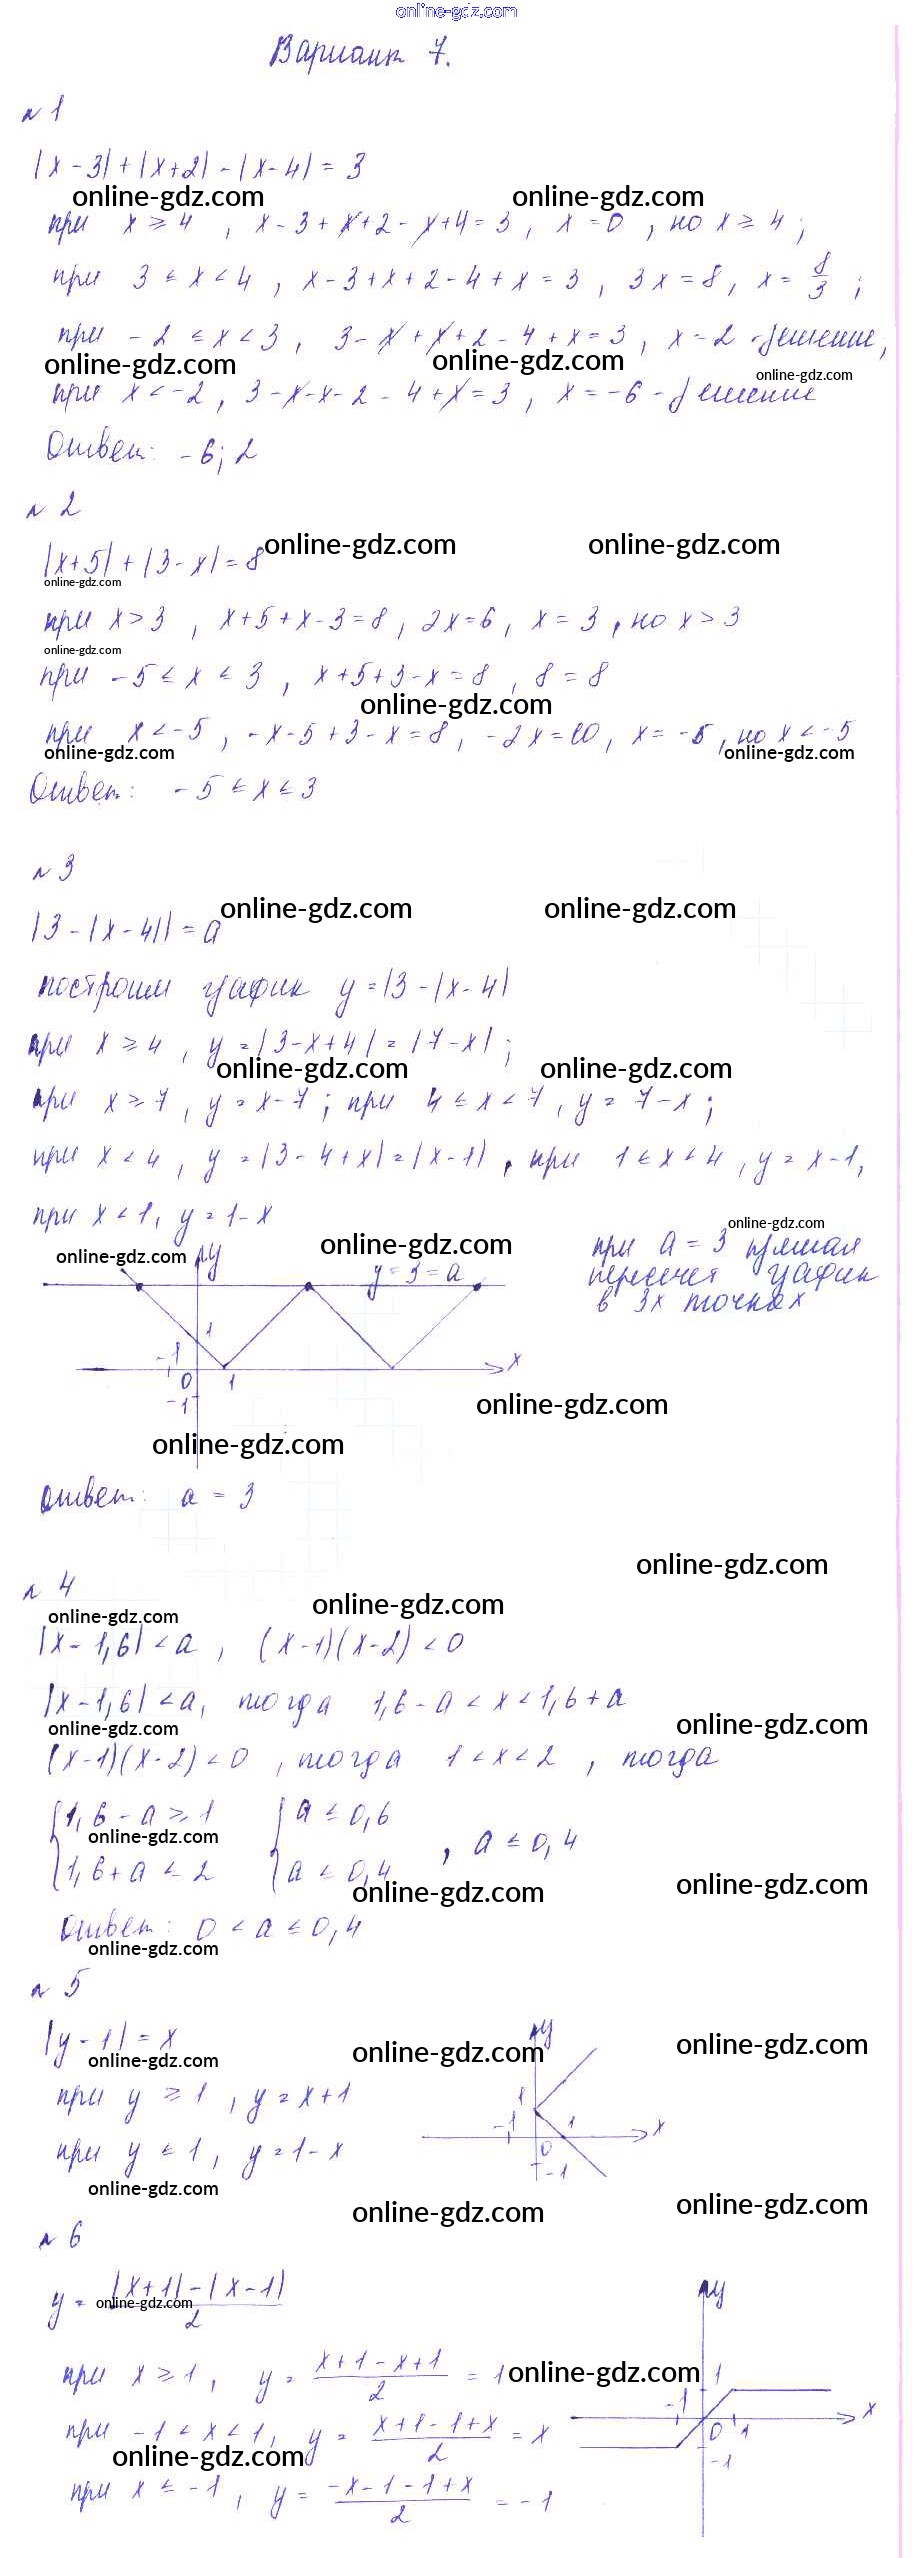 online-gdz.com
Вариант 7.
№ 1
|x - 3| + |x + 2| - |x - 4| = 3
online-gdz.com online-gdz.com
при x ≥ 4 , x - 3 + x + 2 - x + 4 = 3 , x = 0 , но x ≥ 4 ;
при 3 ≤ x < 4 , x - 3 + x + 2 - 4 + x = 3 , 3x = 8 , x = 8/3 ;
при -2 ≤ x < 3 , 3 - x + x + 2 - 4 + x = 3 , x = 2 - решение ,
online-gdz.com online-gdz.com online-gdz.com
при x < -2 , 3 - x - x - 2 - 4 + x = 3 , x = -6 - решение
Ответ: -6; 2
№ 2
online-gdz.com online-gdz.com
|x + 5| + |3 - x| = 8
online-gdz.com
при x > 3 , x + 5 + x - 3 = 8 , 2x = 6 , x = 3 , но x > 3
online-gdz.com
при -5 ≤ x ≤ 3 , x + 5 + 3 - x = 8 , 8 = 8
online-gdz.com
при x < -5 , -x - 5 + 3 - x = 8 , -2x = 10 , x = -5 , но x < -5
online-gdz.com online-gdz.com
Ответ: -5 ≤ x ≤ 3
№ 3
online-gdz.com online-gdz.com
|3 - |x - 4|| = a
построим график y = |3 - |x - 4|
при x ≥ 4 , y = |3 - x + 4| = |7 - x| ;
online-gdz.com online-gdz.com
при x ≥ 7 , y = x - 7 ; при 4 ≤ x < 7 , y = 7 - x ;
при x < 4 , y = |3 - 4 + x| = |x - 1| , при 1 ≤ x < 4 , y = x - 1 ,
при x < 1 , y = 1 - x
online-gdz.com
online-gdz.com online-gdz.com
y
y = 3 = a
при a = 3 прямая
пересечет график
в 3х точках
1
-1 0 1 x
-1
online-gdz.com
online-gdz.com
Ответ: a = 3
online-gdz.com
№ 4
online-gdz.com online-gdz.com
|x - 1,6| < a , (x - 1)(x - 2) < 0
|x - 1,6| < a , тогда 1,6 - a < x < 1,6 + a
online-gdz.com online-gdz.com
(x - 1)(x - 2) < 0 , тогда 1 < x < 2 , тогда
{1,6 - a ≥ 1 {a ≤ 0,6
online-gdz.com , a ≤ 0,4
{1,6 + a ≤ 2 {a ≤ 0,4
online-gdz.com online-gdz.com
Ответ: 0 < a ≤ 0,4
online-gdz.com
№ 5
|y - 1| = x
online-gdz.com online-gdz.com online-gdz.com
y
при y ≥ 1 , y = x + 1
1
-1 0 1 x
-1
при y ≤ 1 , y = 1 - x
online-gdz.com online-gdz.com online-gdz.com
№ 6
y = (|x + 1| - |x - 1|)/2
online-gdz.com
y
при x ≥ 1 , y = (x + 1 - x + 1)/2 = 1
online-gdz.com
1
-1 0 1 x
-1
при -1 < x < 1 , y = (x + 1 - 1 + x)/2 = x
online-gdz.com
при x ≤ -1 , y = (-x - 1 - 1 + x)/2 = -1